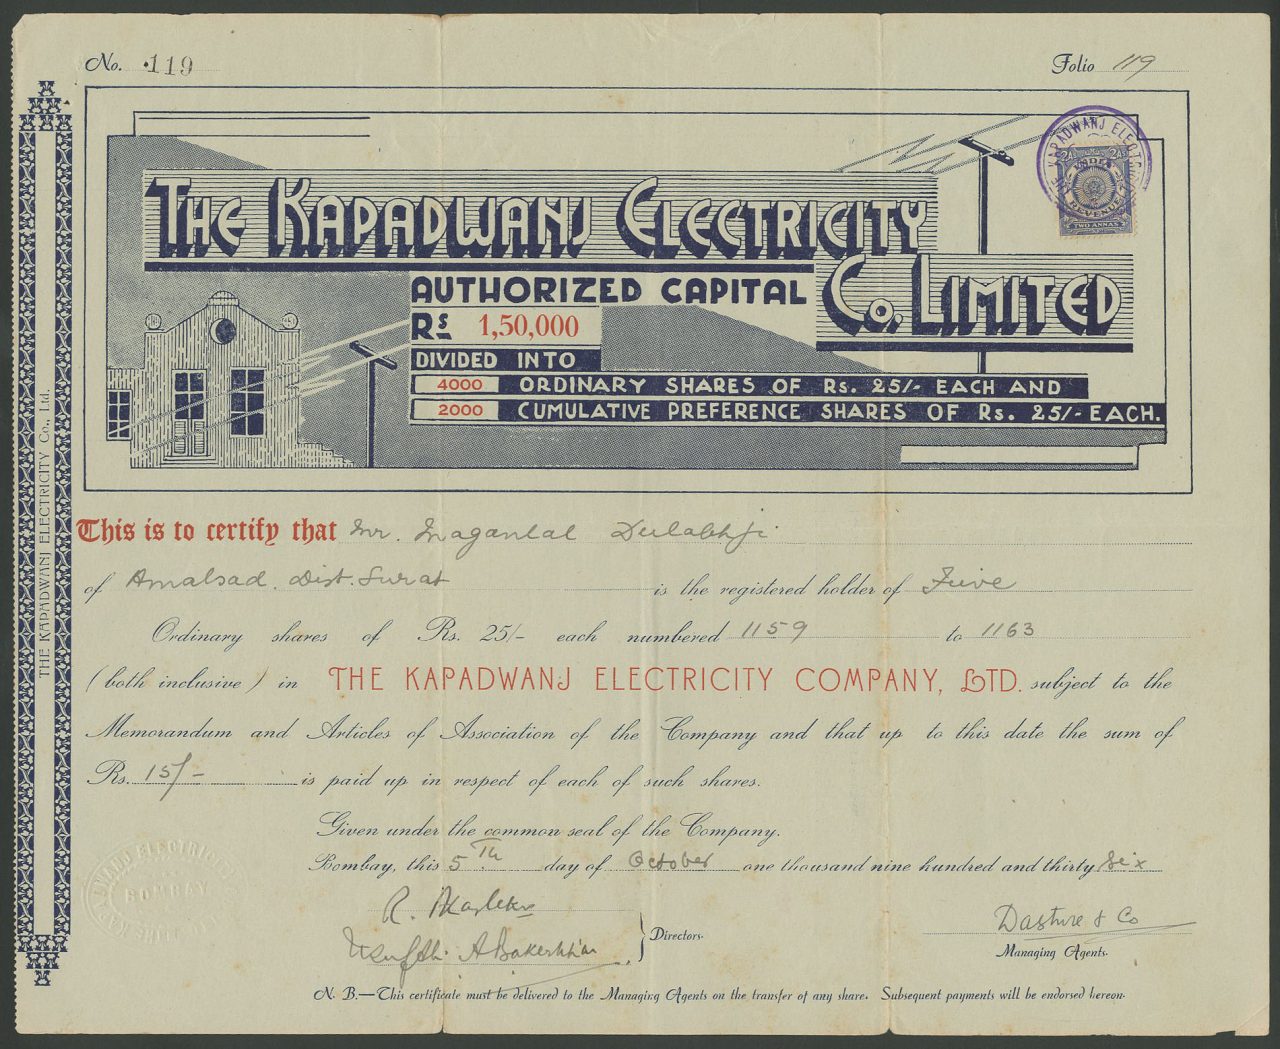 No. 119
Folio 119
THE KAPADWANJ ELECTRICITY
Co. LIMITED
AUTHORIZED CAPITAL
Rs 1,50,000
DIVIDED INTO
4000 ORDINARY SHARES OF Rs. 25/- EACH AND
2000 CUMULATIVE PREFERENCE SHARES OF Rs. 25/- EACH.
REVENUE
TWO ANNAS
THE KAPADWANJ ELECTRICITY Co., Ltd.
This is to certify that Mr. Maganlal Dulabhji
of Amalsad. Dist. Surat is the registered holder of Five
Ordinary shares of Rs. 25/- each numbered 1159 to 1163
(both inclusive) in THE KAPADWANJ ELECTRICITY COMPANY, LTD. subject to the
Memorandum and Articles of Association of the Company and that up to this date the sum of
Rs. 15/- is paid up in respect of each of such shares.
Given under the common seal of the Company.
Bombay, this 5th day of October one thousand nine hundred and thirty six
BOMBAY
R.
Directors.
Dasture & Co
Managing Agents.
N. B.—This certificate must be delivered to the Managing Agents on the transfer of any share. Subsequent payments will be endorsed hereon.